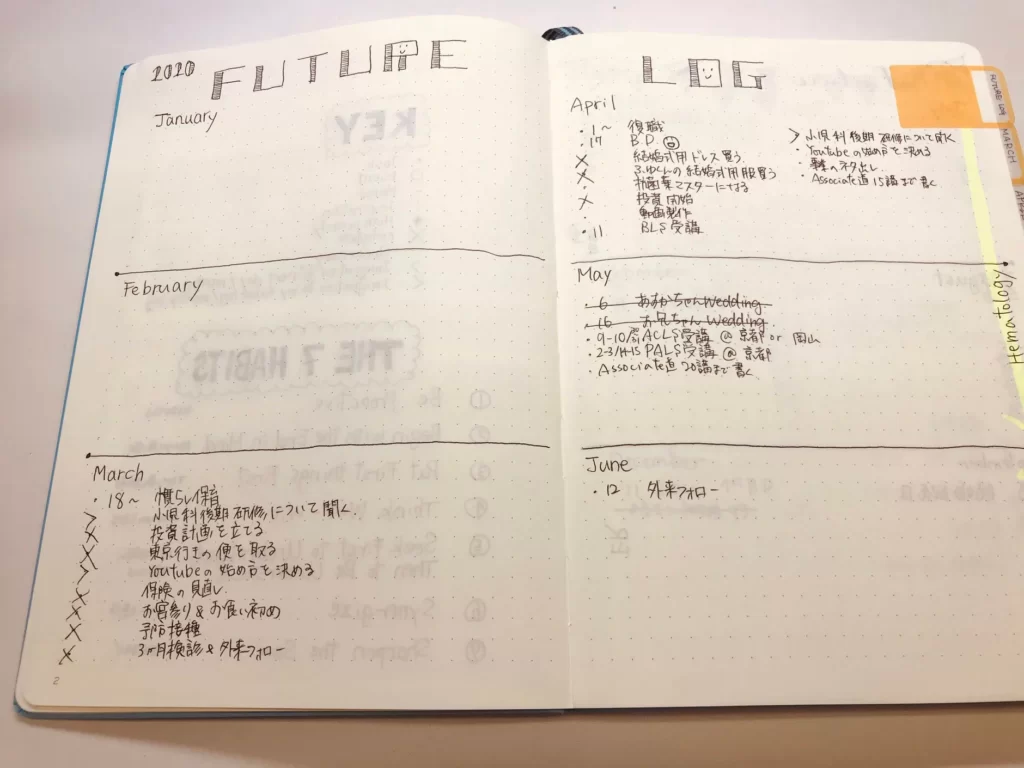 2020 FUTURE
January
February
March
・18〜 慣らし保育
> 小児科後期研修について聞く
× 投資計画を立てる
× 東京行きの便を取る
> Youtubeの始め方を決める
× 保険の見直し
× お宮参り & お食い初め
× 予防接種
× 3ヶ月検診 & 外来フォロー
2
LOG
April
・1〜 復職
・17 B.D.
× 結婚式用ドレス買う
× の結婚式用服買う
抗菌薬マスターになる
× 投資開始
・ 動画製作
・11 BLS受講
> 小児科後期研修について聞く
・Youtubeの始め方を決める
・ のネタ出し
・Associate道15講まで書く
May
・6 あおかちゃんWedding
・16 お兄ちゃんWedding
・9-10/ ACLS受講 @ 京都 or 岡山
・2-3/14-15 PALS受講 @ 京都
・Associate道20講まで書く
June
・12 外来フォロー
FUTURE LOG
MARCH
Hematology
KEY
THE 7 HABITS